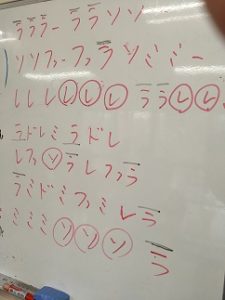 ララ ラー ララ ソソ ー
ソソファーファラソミミー
レレレレレレ ララレレ
ラドレミラドレ
レファソラレファラ
ラミドミファミレラ
ミミミソソソ ラ